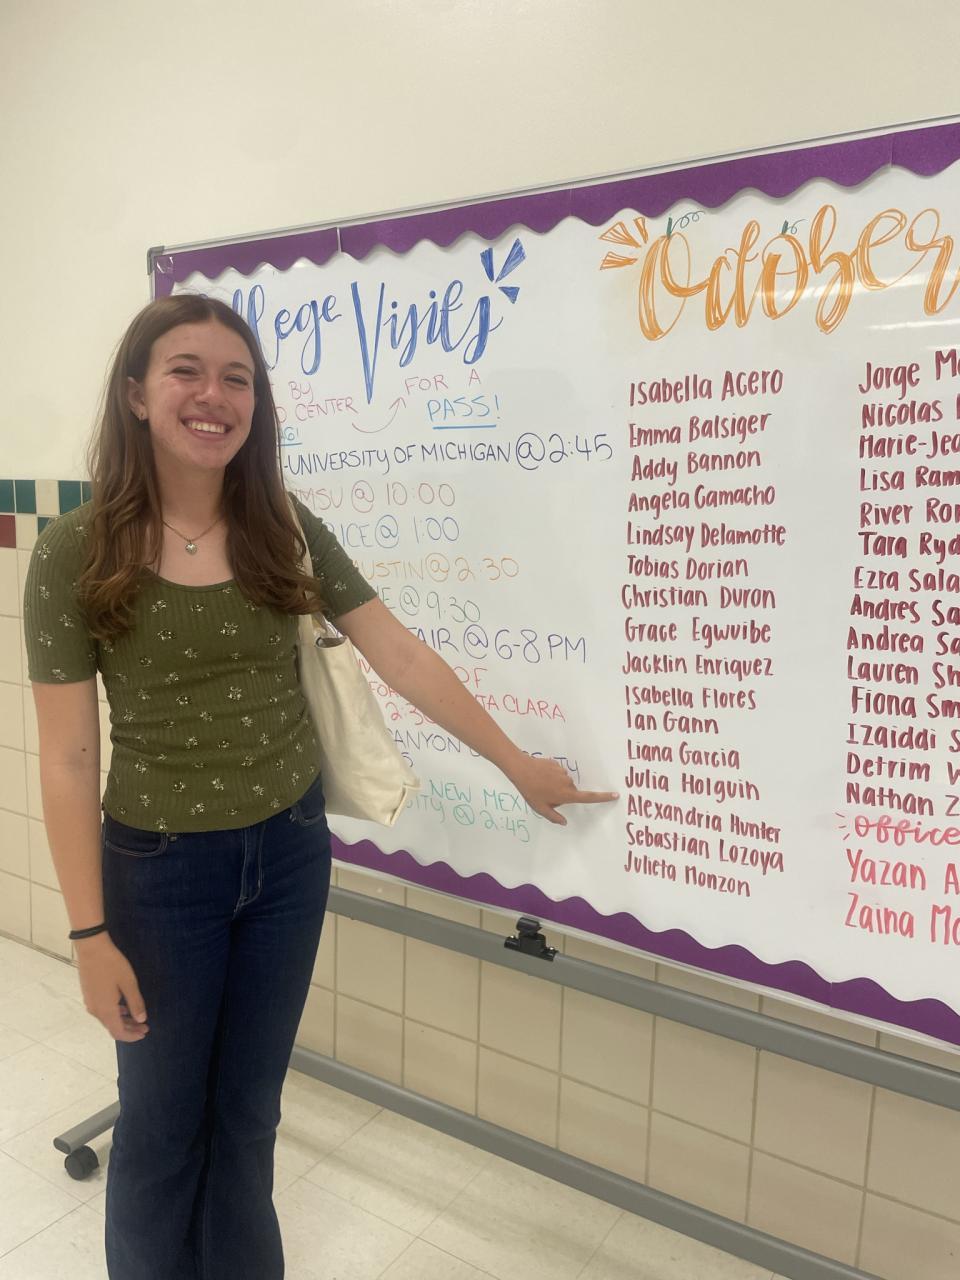 College Visits
BY
CENTER
FOR A
PASS!
-UNIVERSITY OF MICHIGAN @ 2:45
NMSU @ 10:00
RICE @ 1:00
AUSTIN @ 2:30
@ 9:30
FAIR @ 6-8 PM
OF
2:30 SANTA CLARA
CANYON UNIVERSITY
NEW MEXICO
@ 2:45
October
Isabella Acero
Emma Balsiger
Addy Bannon
Angela Camacho
Lindsay Delamotte
Tobias Dorian
Christian Duron
Grace Egwuibe
Jacklin Enriquez
Isabella Flores
Ian Gann
Liana Garcia
Julia Holguin
Alexandria Hunter
Sebastian Lozoya
Julieta Monzon
Jorge
Nicolas
Marie-Jea
Lisa Ram
River Ro
Tara Ryd
Ezra Sala
Andres Sa
Andrea Sa
Lauren Sh
Fiona Sm
Izaiddi S
Detrim
Nathan Z
Office
Yazan A
Zaina Mo